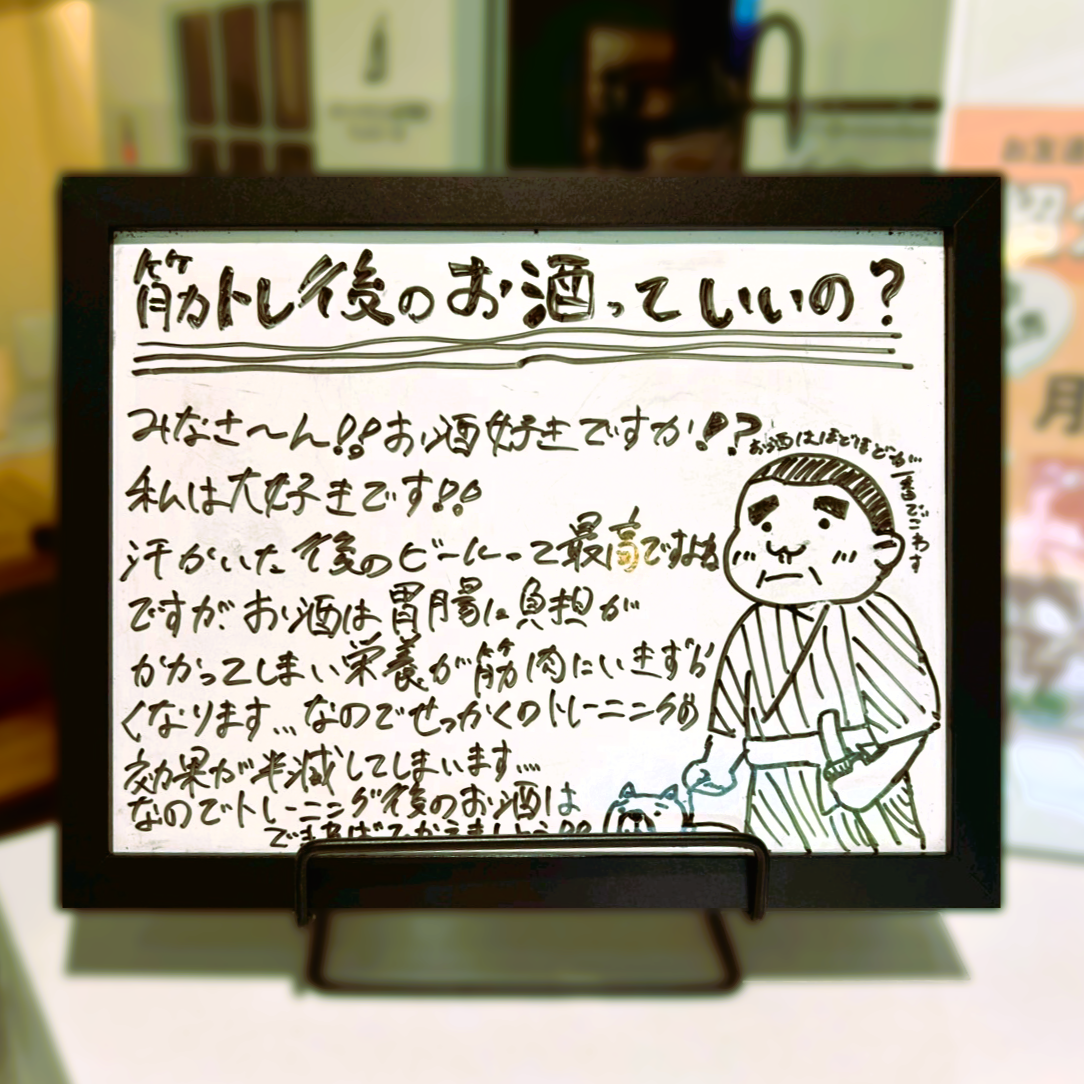 筋トレ後のお酒っていいの?
みなさ〜ん!!お酒好きですか!?
私は大好きです!!
汗かいた後のビールって最高ですよね
ですが、お酒は胃腸に負担が
かかってしまい栄養が筋肉にいきずら
くなります…なのでせっかくのトレーニングの
効果が半減してしまいます….
なのでトレーニング後のお酒は
できればひかえましょう!!
お酒はほどほどが…
一番でごわす
お友達
月